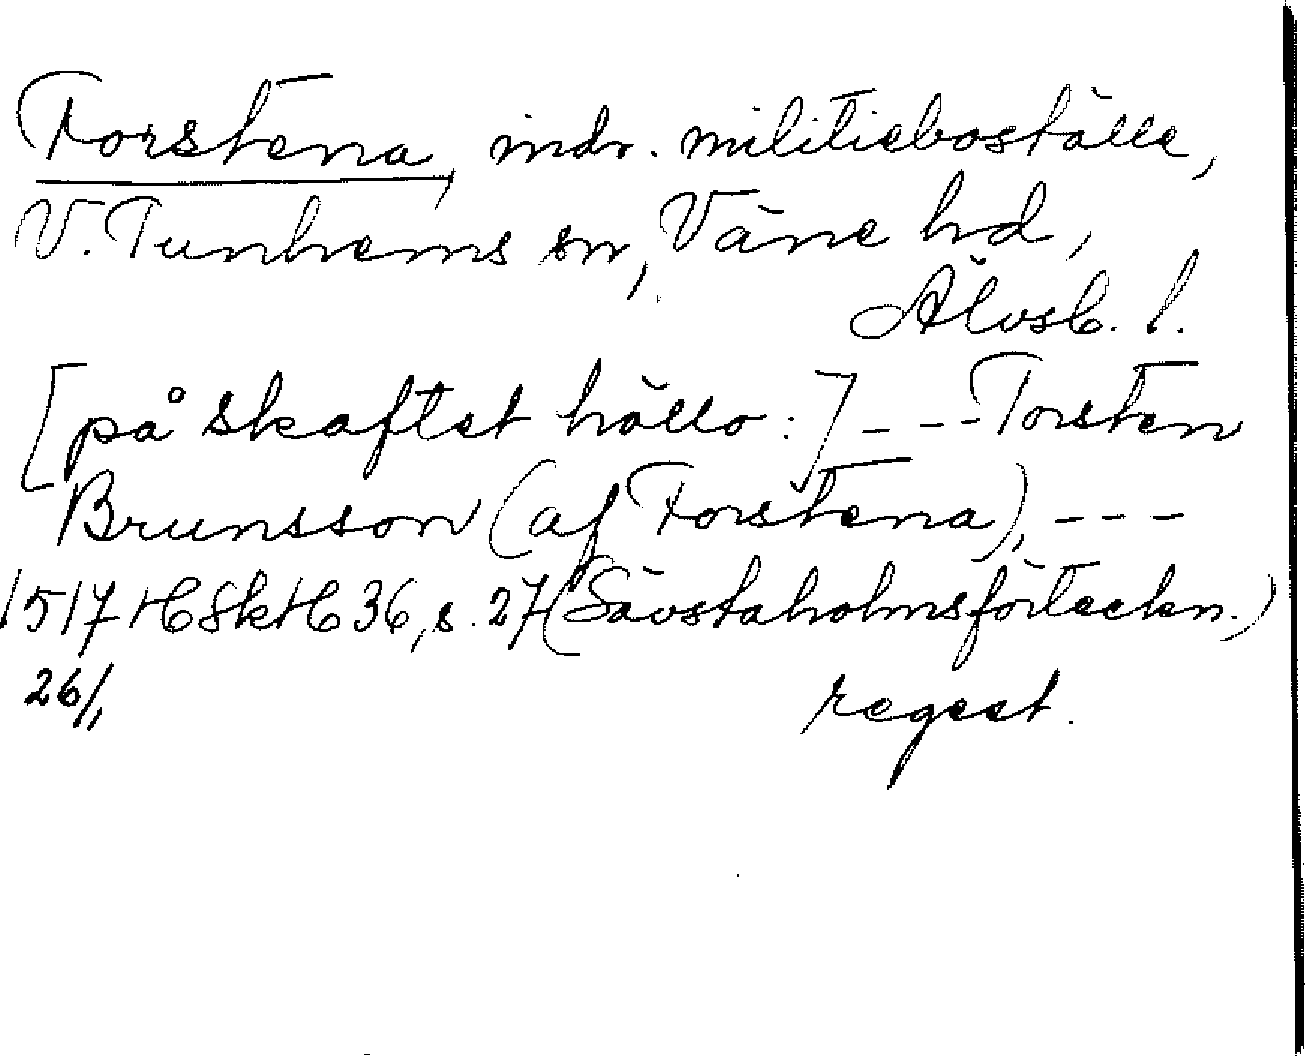 Forstena, indr. militieboställe,
V. Tunhems sn, Väne hd,
Älvsb. l.
[på skaftet hållo:] --- Torsten
Brunsson (af Forstena), ---
1517 HSkH 36, s. 27 (Sävstaholmsförteckn.)
26/1
regest.